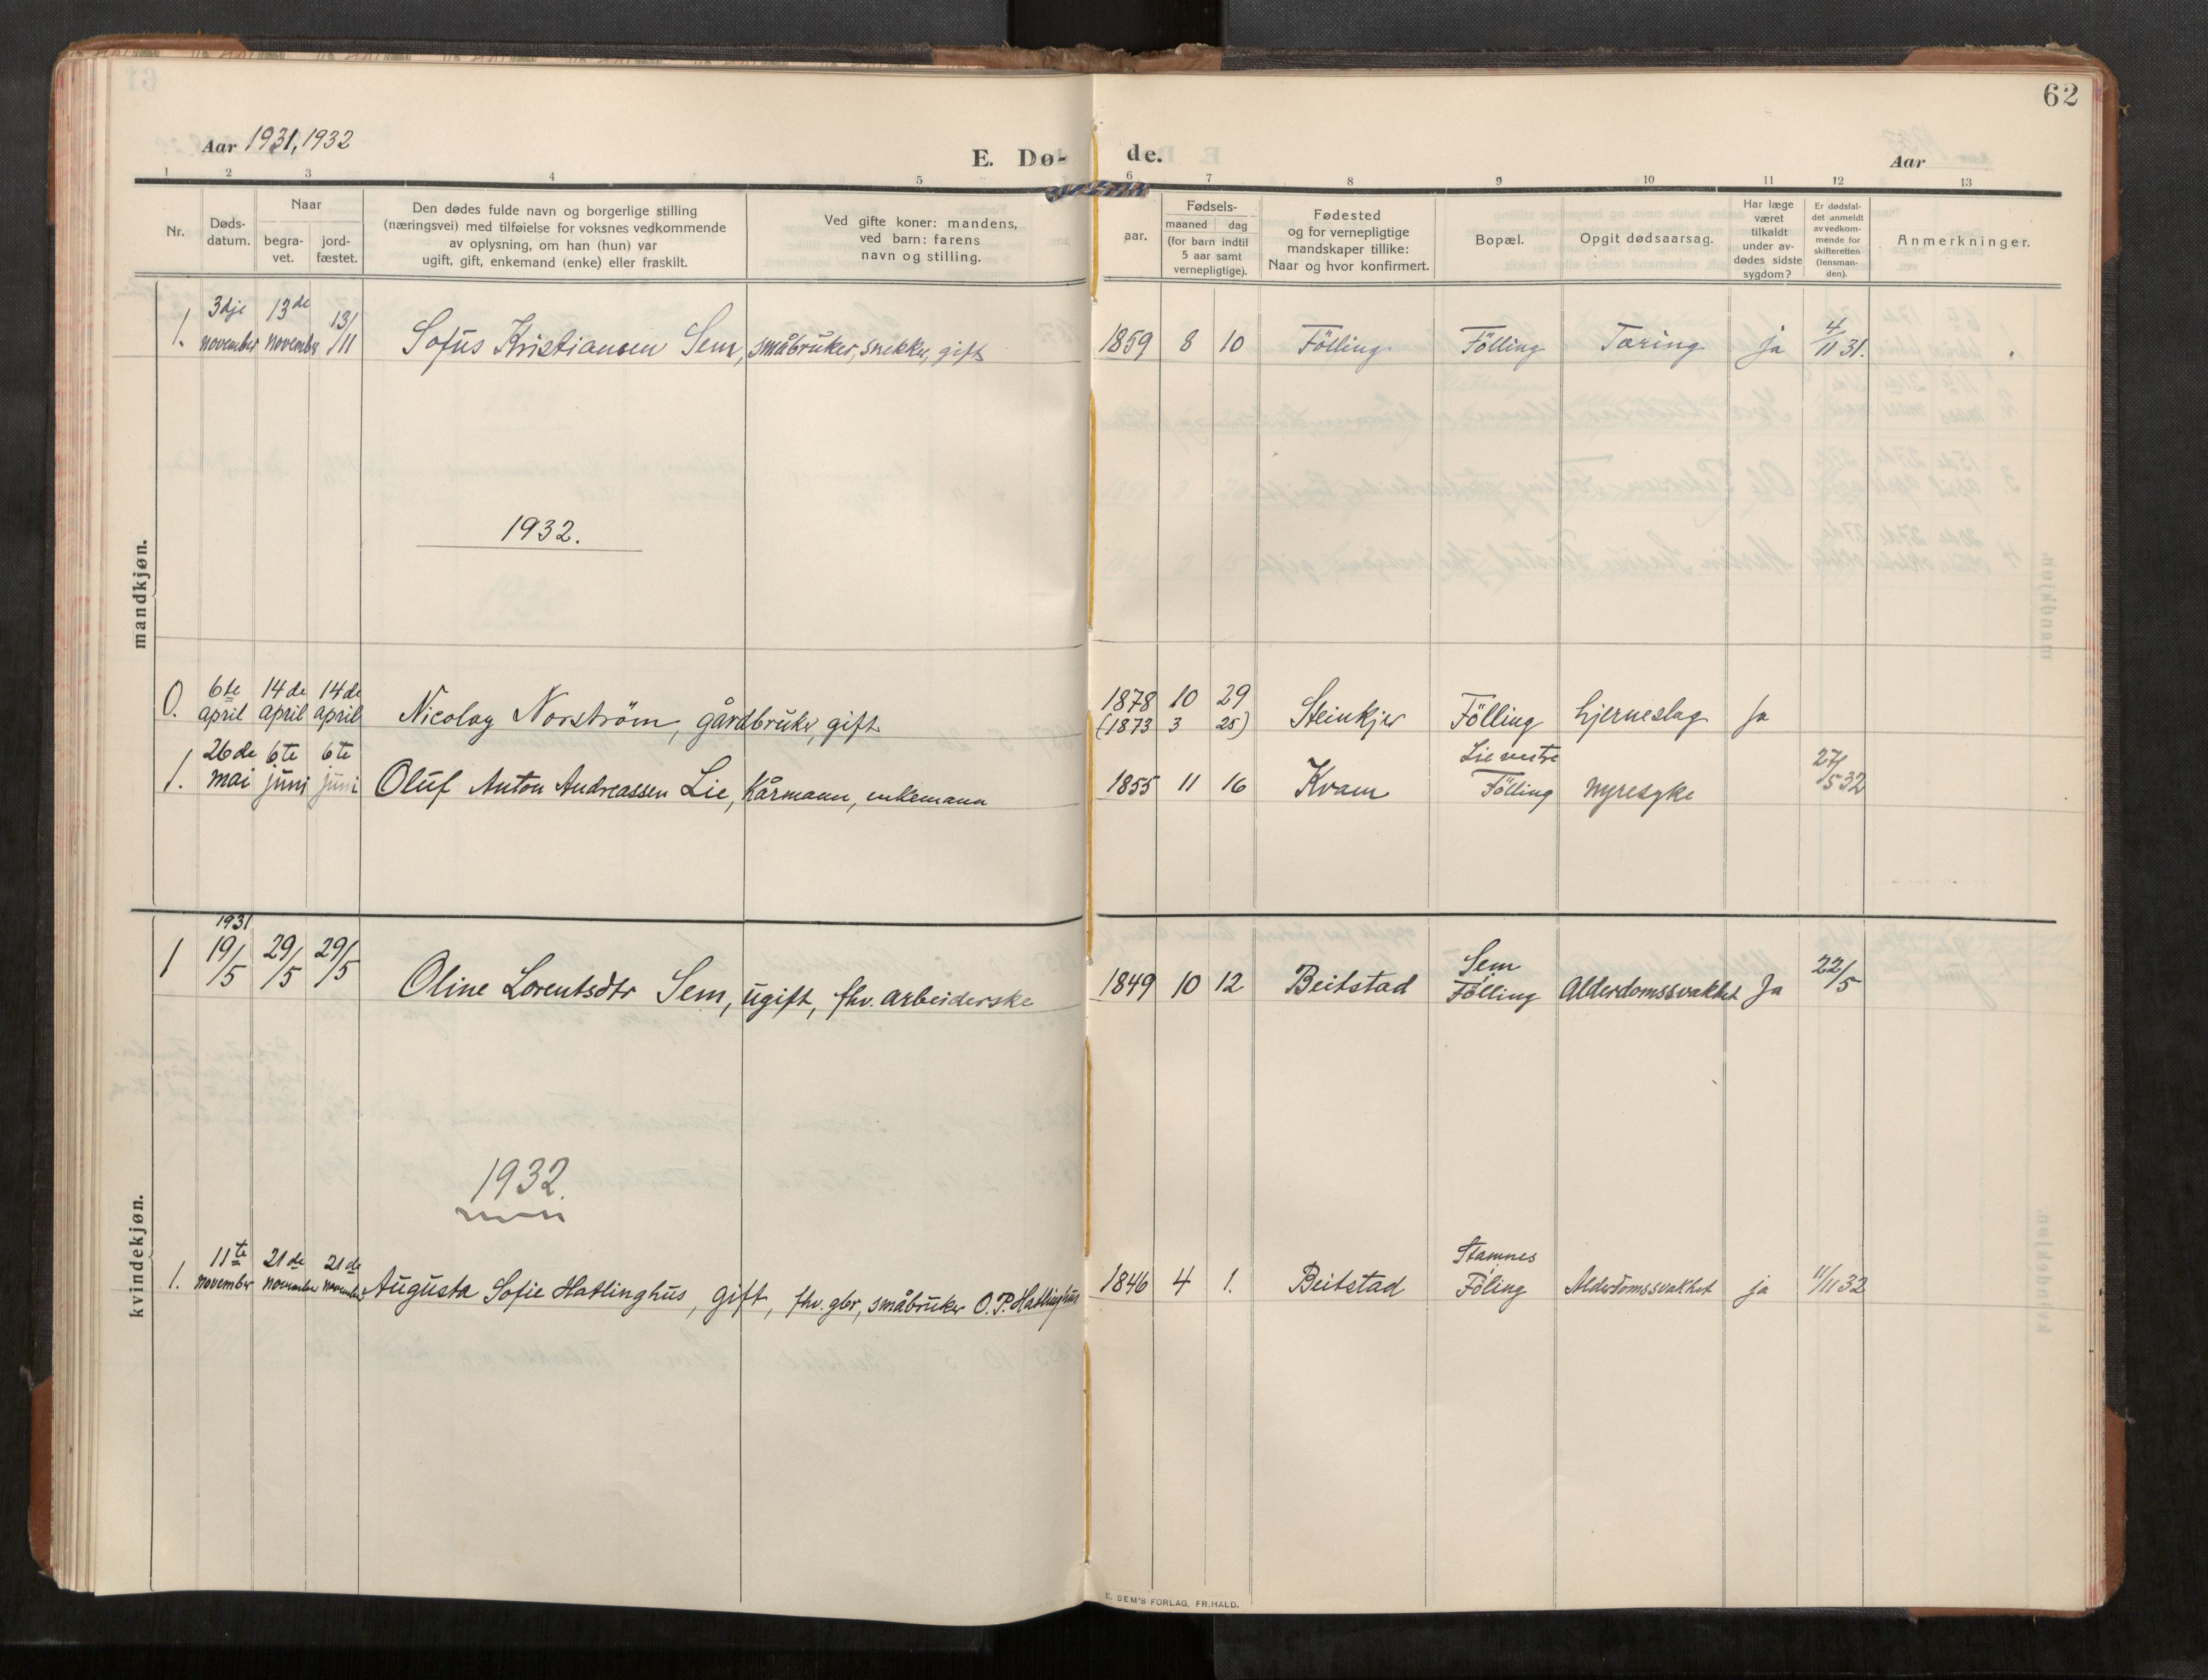 62
Aar 1931, 1932
E. Dø- de.
Aar
1 2 3 4 5 6 7 8 9 10 11 12 13
Nr.
Døds-
datum.
Naar
begra-
vet.
jord-
fæstet.
Den dødes fulde navn og borgerlige stilling
(næringsvei) med tilføielse for voksnes vedkommende
av oplysning, om han (hun) var
ugift, gift, enkemand (enke) eller fraskilt.
Ved gifte koner: mandens,
ved barn: farens
navn og stilling.
Fødsels-
aar.
maaned dag
(for barn indtil
5 aar samt
vernepligtige).
Fødested
og for vernepligtige
mandskaper tillike:
Naar og hvor konfirmert.
Bopæl.
Opgit dødsaarsag.
Har læge
været
tilkaldt
under av-
dødes sidste
sygdom?
Er dødsfal-
det anmeldt
av vedkom-
mende for
skifteretten
(lensman-
den).
Anmerkninger.
mandkjøn.
1. 3dje november 13de november 13/11 Sofus Kristiansen Sem, småbruker, snekker, gift 1859 8 10 Fölling Fölling Tæring ja 4/11 31.
1932.
0. 6te april 14de april 14de april Nicolay Norström, gårdbruker, gift 1878 10 29 (1873 3 25) Steinkjer Fölling hjerneslag Ja
1. 26de mai 6te juni 6te juni Oluf Anton Andreassen Lie, Kårmann, enkemann 1855 11 16 Kvam Lie vestre Fölling nyresyke 27/5 32
kvindekjøn.
1931
1 19/5 29/5 29/5 Oline Lorentsdtr Sem, ugift, fhv. arbeiderske 1849 10 12 Beitstad Sem Fölling Alderdomssvakhet Ja 22/5
1932.
1. 11te november 21de november 21de november Augusta Sofie Hatlinghus, gift, fhv. gbr, småbruker O. P. Hatlinghus 1846 4 1. Beitstad Stamnes Föling Alderdomssvakhet ja 11/11 32
E. SEM'S FORLAG, FR.HALD.